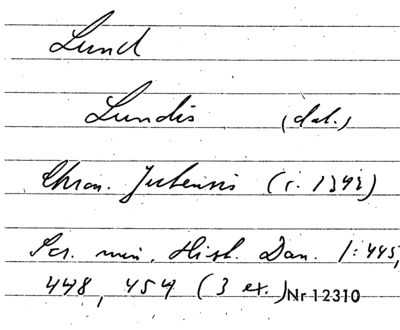 Lund
Lundis (dat.)
Chron. Jutensis (c. 1342)
Scr. min. Hist. Dan. 1:445,
448, 454 (3 ex.) Nr 12310